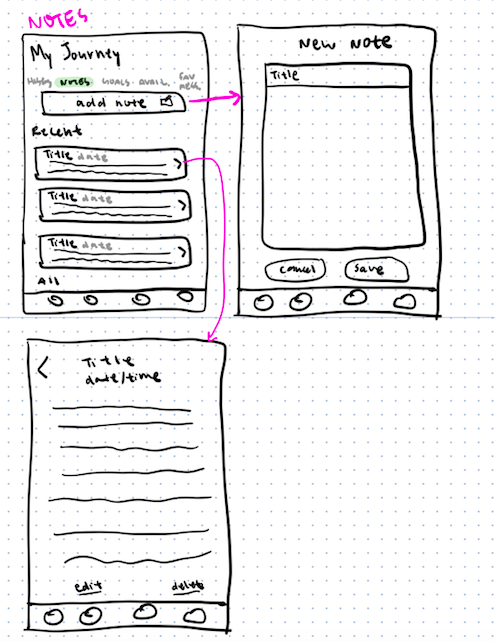 NOTES
My Journey
NOTES GOALS AVAIL. FAV
add note
Recent
Title date
Title date
Title date
All
New Note
Title
cancel save
Title
date/time
edit delete